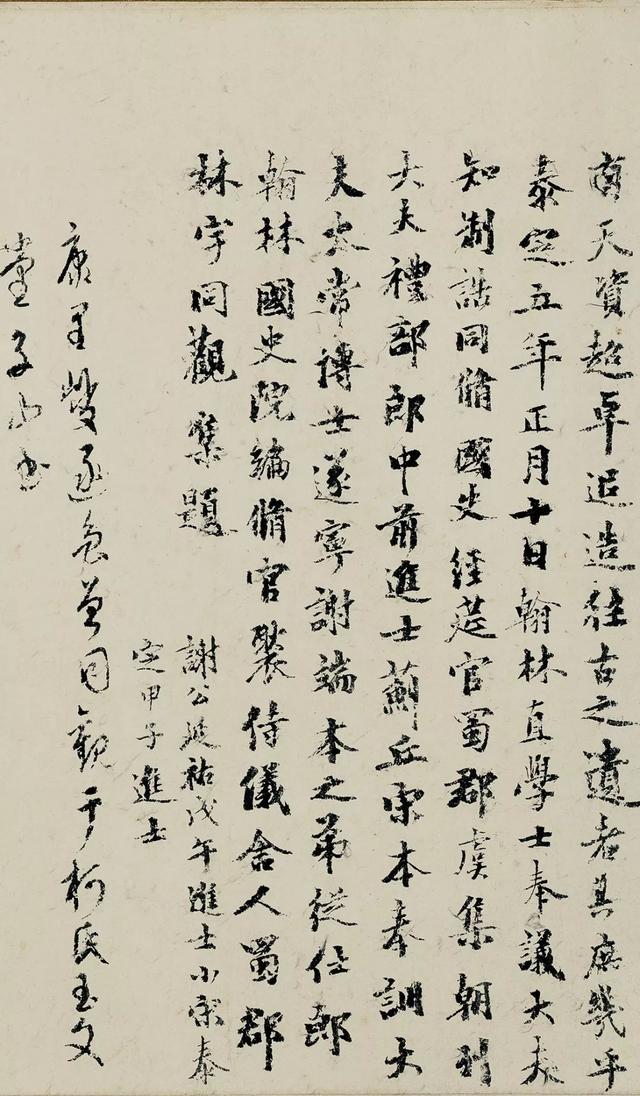 天資超卓追造往古之遺者其庶幾乎
泰定五年正月十日翰林直學士奉議大夫
知制誥同脩國史經筵官蜀郡虞集朝列
大夫禮部郎中前進士薊丘宋本奉訓大
夫太常博士遂寧謝端本之弟從仕郎
翰林國史院編脩官褧侍儀舍人蜀郡
林宇同觀集題
謝公延祐戊午進士小宋泰
定甲子進士
康里巎同觀于柯氏玉文
堂子山書